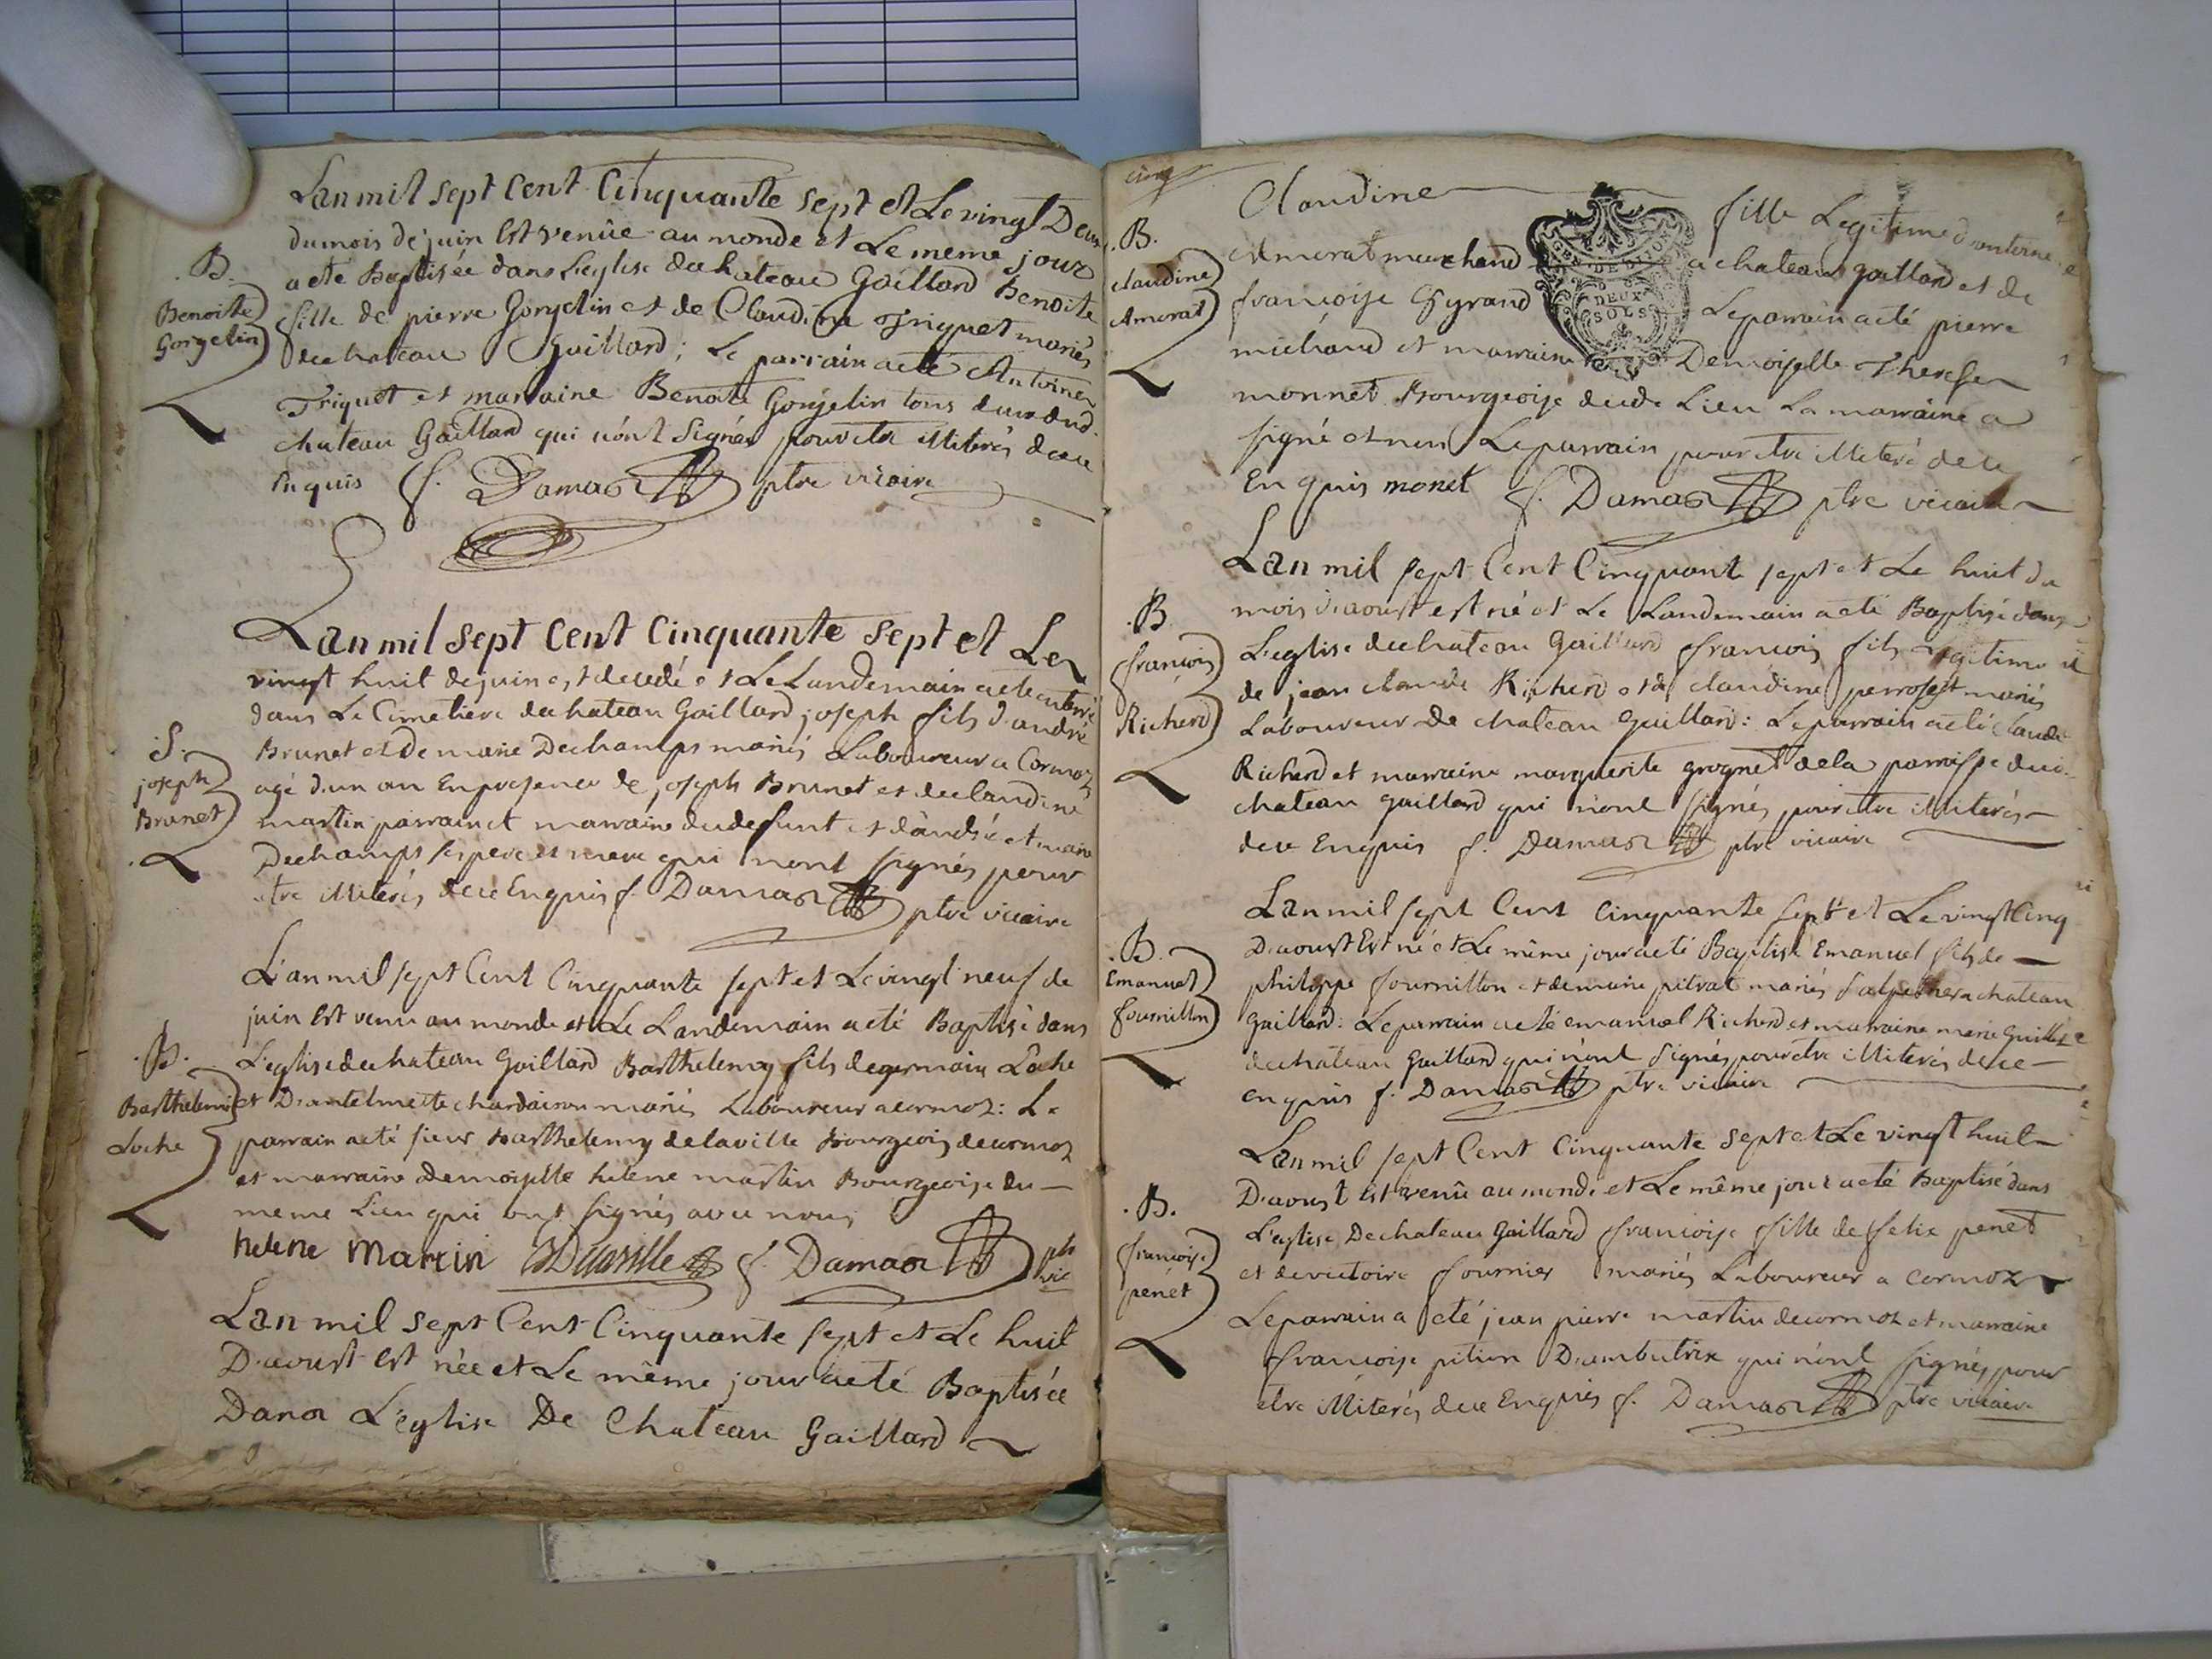 Lan mil sept Cent Cinquante sept et Le vingt Deux
du mois de juin Est venûe au monde et Le meme jour
a eté Baptisée dans L'eglise de chateau Gaillard Benoite
fille de pierre Gorgelin et de Claudine Triquet mariés
de chateau Gaillard; Le parrain a eté Antoine
Triquet et marraine Benoite Gorgelin tous deux dud.
chateau Gaillard qui n'ont Signés pour etre illiterés de ce
Enquis f. Damas ptre vicaire
.B.
Benoite
Gorgelin
Lan mil sept Cent Cinquante sept et Le
vingt huit de juin est decedé et Le Landemain a eté enterré
dans Le Cimetiere de chateau Gaillard joseph fils d'andré
Brunet et De marie Dechamps mariés Laboureur a Cormoz
agé d'un an En presence de joseph Brunet et de claudine
martin parrain et marraine du defunt et d'andré et marie
Dechamps ses pere et mere qui n'ont signés pour
etre illiterés de ce Enquis f. Damas ptre vicaire
.S.
joseph
Brunet
L'an mil sept Cent Cinquante sept et Le vingt neuf de
juin Est venu au monde et Le Landemain a eté Baptisé dans
L'eglise de chateau Gaillard Barthelemy fils de germain Loche
et D'antelmette chardairon mariés Laboureur a cormoz: Le
parrain a eté sieur Barthelemy delaville Bourgeois de cormoz
et marraine demoiselle helene martin Bourgeoise du
meme Lieu qui ont signés avec nous
helene Martin BDelaville f. Damas ptr vic
.B.
Barthelemi
Loche
Lan mil sept Cent Cinquante sept et Le huit
D'aoust est née et Le même jour a eté Baptisée
Dans L'eglise De Chateau Gaillard
cinq
Claudine fille Legitime d'antoine
Amorat marchand a chateau gaillard et de
francoise Gyrand Le parrain a eté pierre
michaud et marraine Demoiselle Therese
monnet Bourgeoise dud. Lieu La marraine a
signé et non Le parrain pour etre illiteré de ce
Enquis monet f. Damas ptre vicaire
GEN. DE DIJON
DEUX
SOLS
.B.
claudine
Amorat
Lan mil sept Cent Cinquante sept et Le huit du
mois d'aoust est né et Le Landemain a eté Baptisé dans
L'eglise de chateau Gaillard francois fils Legitime
de jean claude Richerd et de claudine perroset mariés
Laboureur de chateau Gaillard: Le parrain a eté claude
Richerd et marraine marguerite grognet de la parroisse dud.
chateau gaillard qui n'ont signés pour etre illiterés
de ce Enquis f. Damas ptre vicaire
.B.
francois
Richerd
Lan mil sept Cent Cinquante sept et Le vingt Cinq
D'aoust Est né et Le même jour a eté Baptisé Emanuel fils de
philippe fournillon et de marie pitrat mariés Salpetrier a chateau
gaillard: Le parrain a eté emanuel Richerd et marraine marie Guillet
de chateau Gaillard qui n'ont signés pour etre illiterés de ce
enquis f. Damas ptre vicaire
.B.
Emanuel
fournillon
Lan mil sept Cent Cinquante sept et Le vingt huit
D'aoust Est venû au monde et Le même jour a eté Baptisé dans
L'eglise De chateau Gaillard francoise fille de felix penet
et de victoire fournier mariés Laboureur a cormoz
Le parrain a eté jean pierre martin de cormoz et marraine
francoise pition D'ambutrix qui n'ont signés pour
etre illiterés de ce Enquis f. Damas ptre vicaire
.B.
francoise
penet